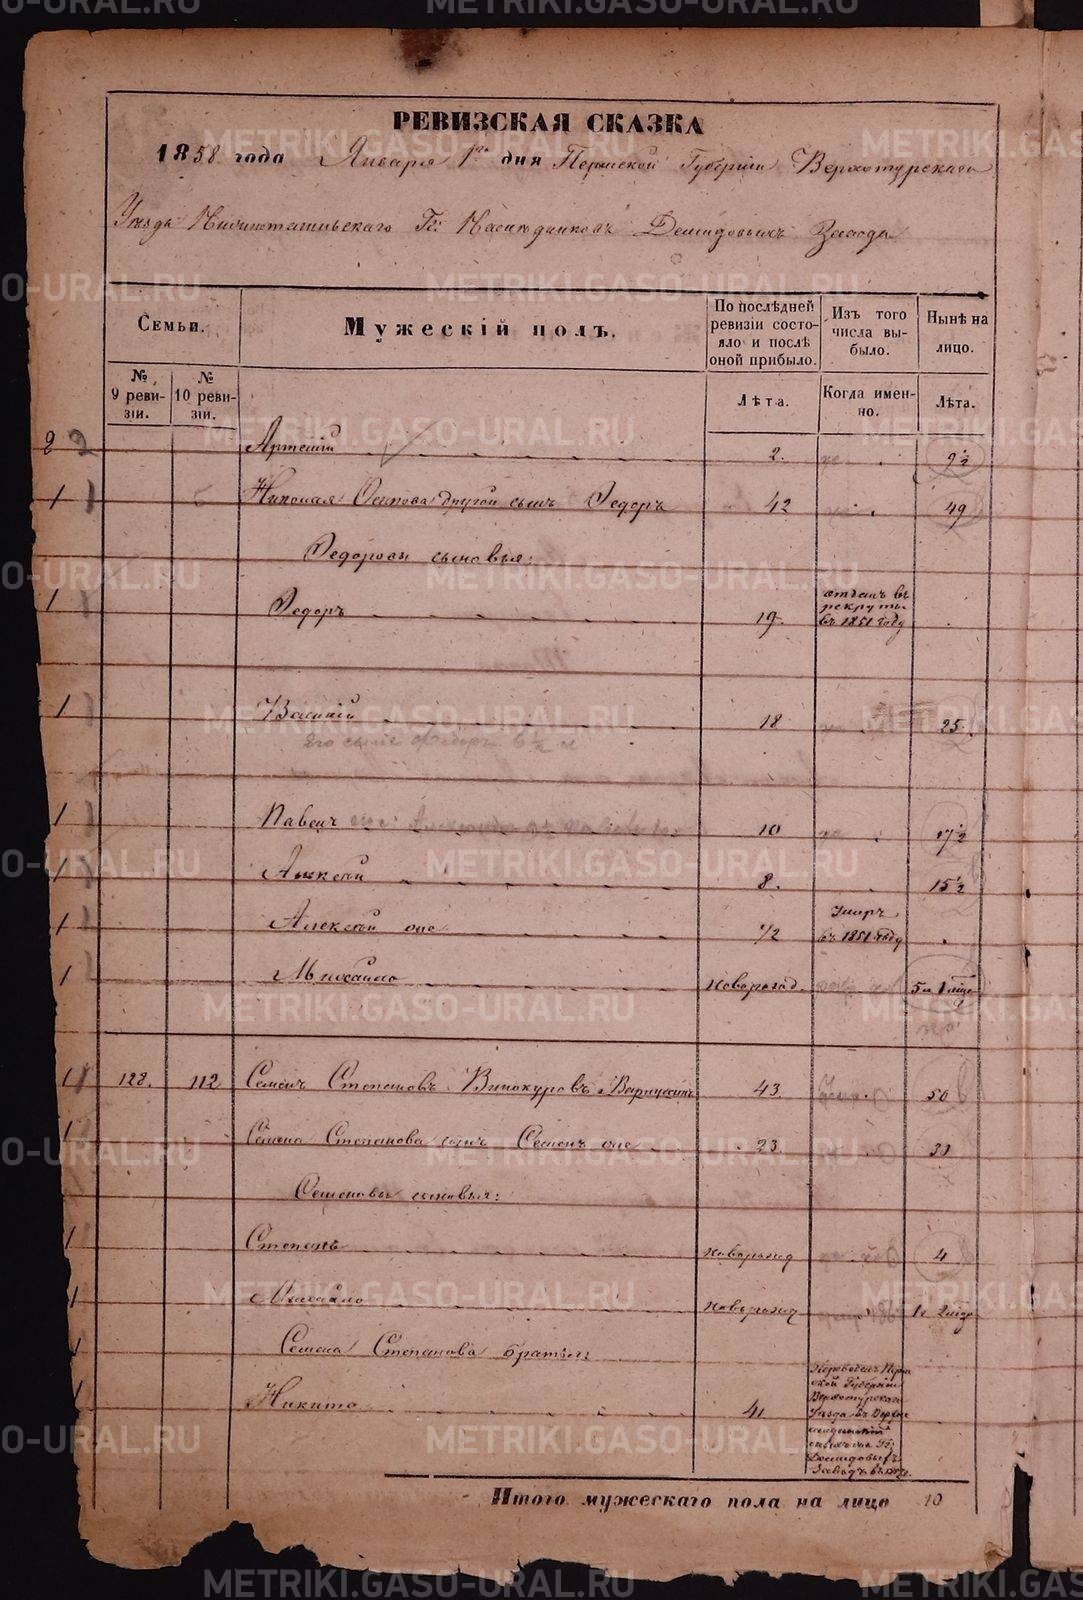 РЕВИЗСКАЯ СКАЗКА
1858 года Января 1го дня Пермской Губернии Верхотурскаго
Уѣзда Нижнотагильскаго Гг: Наслѣдниковъ Демидовыхъ Завода
Семьи.
№ 9 ревизіи.
№ 10 ревизіи.
Мужескій полъ.
По послѣдней ревизіи состояло и послѣ оной прибыло.
Изъ того числа выбыло.
Нынѣ на лицо.
Лѣта.
Когда именно.
Лѣта.
2 2 Артемій 2. 9½
1 1 Николая Осипова другой сынъ Ѳедоръ 42 49
Ѳедоровы сыновья:
1 Ѳедоръ 19. отданъ въ рекруты въ 1851 году
1 Василій 18 25
Его сынъ
1 Павелъ 10 17½
1 Алексѣй 8. 15½
1 Алексѣй оне ½ Умеръ въ 1851 году
1 Михайло новорожд. 5 и 1 мѣся
1 128. 112 Семенъ Степановъ Винокуровъ 43 50
1 Семена Степанова сынъ Семенъ оне 23 30
Семеновы сыновья:
1 Степанъ новорожд 4
1 Михайло новорожд 1 и 2 мѣся
Семена Степанова братья:
1 Никита 41 Переведенъ Пермской Губерніи Верхотурскаго Уѣзда въ
Демидовыхъ Заводъ въ
Итого мужескаго пола на лицо 10
METRIKI.GASO-URAL.RU